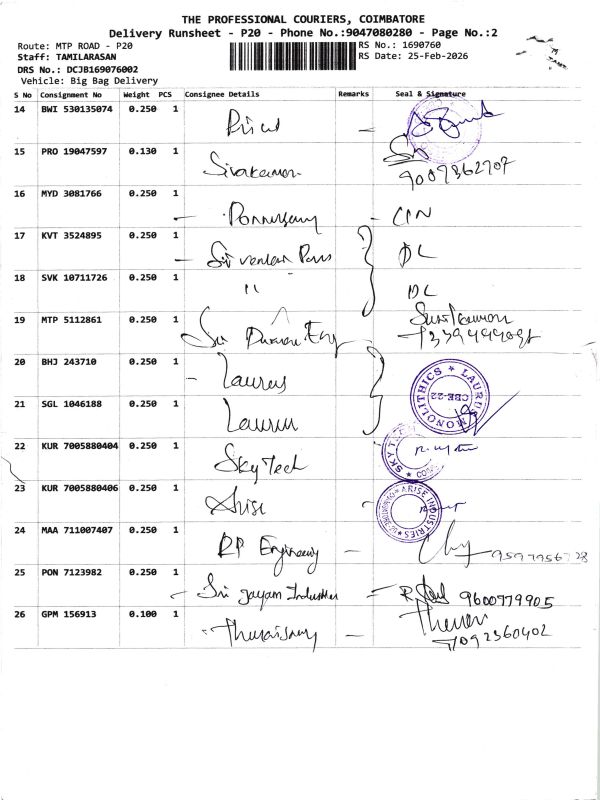 THE PROFESSIONAL COURIERS, COIMBATORE
Delivery Runsheet - P20 - Phone No.:9047080280 - Page No.:2
Route: MTP ROAD - P20
Staff: TAMILARASAN
DRS No.: DCJB169076002
Vehicle: Big Bag Delivery
RS No.: 1690760
RS Date: 25-Feb-2026
S No Consignment No Weight PCS Consignee Details Remarks Seal & Signature
14 BWI 530135074 0.250 1
15 PRO 19047597 0.130 1 Sivakumar
16 MYD 3081766 0.250 1 Ponnusamy
17 KVT 3524895 0.250 1 DL
18 SVK 10711726 0.250 1 " DL
19 MTP 5112861 0.250 1 Sri
20 BHJ 243710 0.250 1 Laurus
21 SGL 1046188 0.250 1 Laurus
LAURUS MONOLITHICS CBE-22
22 KUR 7005880404 0.250 1 Sky Tech
SKY TEC
23 KUR 7005880406 0.250 1 Arise
ARISE INDUSTRIES
24 MAA 711007407 0.250 1 RP Engineering
25 PON 7123982 0.250 1 Sri Jayam Industries 9600779905
26 GPM 156913 0.100 1 Thulasimany 7092360402